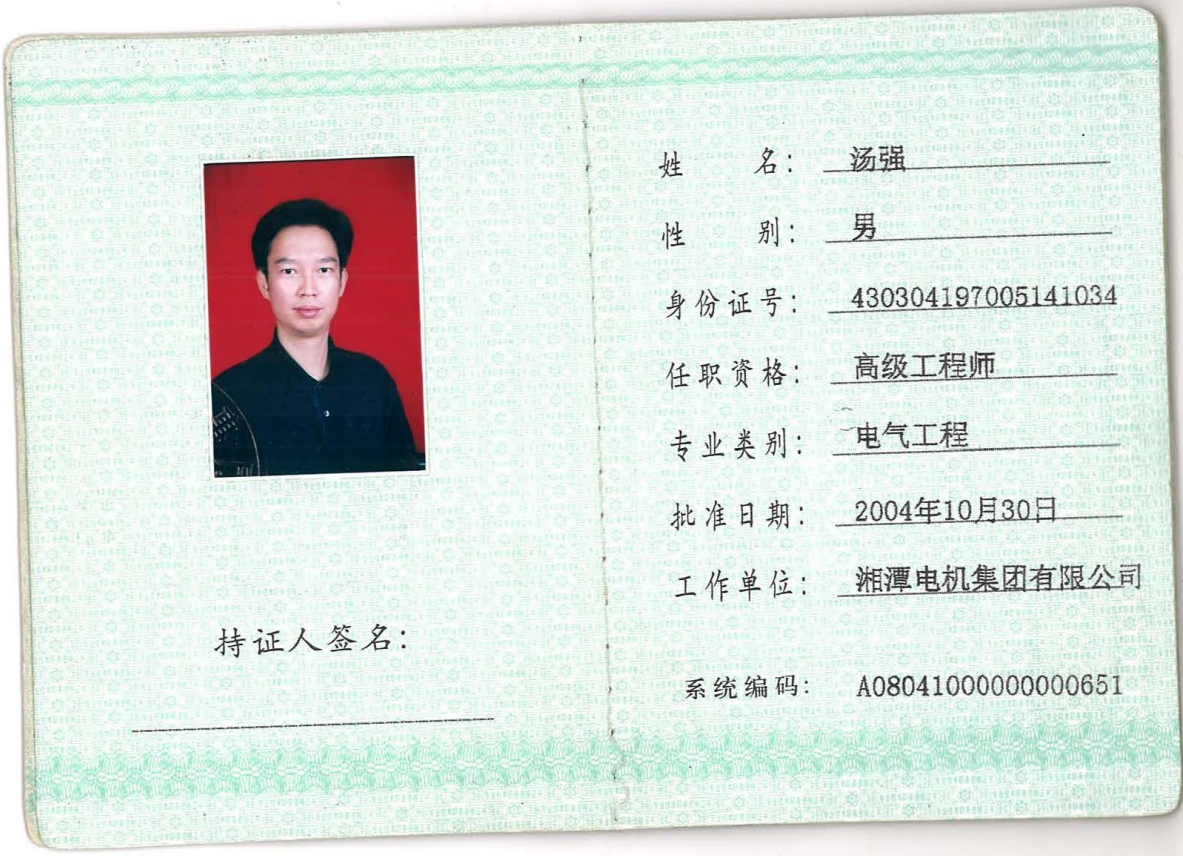 持证人签名:
姓 名: 汤强
性 别: 男
身份证号: 430304197005141034
任职资格: 高级工程师
专业类别: 电气工程
批准日期: 2004年10月30日
工作单位: 湘潭电机集团有限公司
系统编码: A08041000000000651